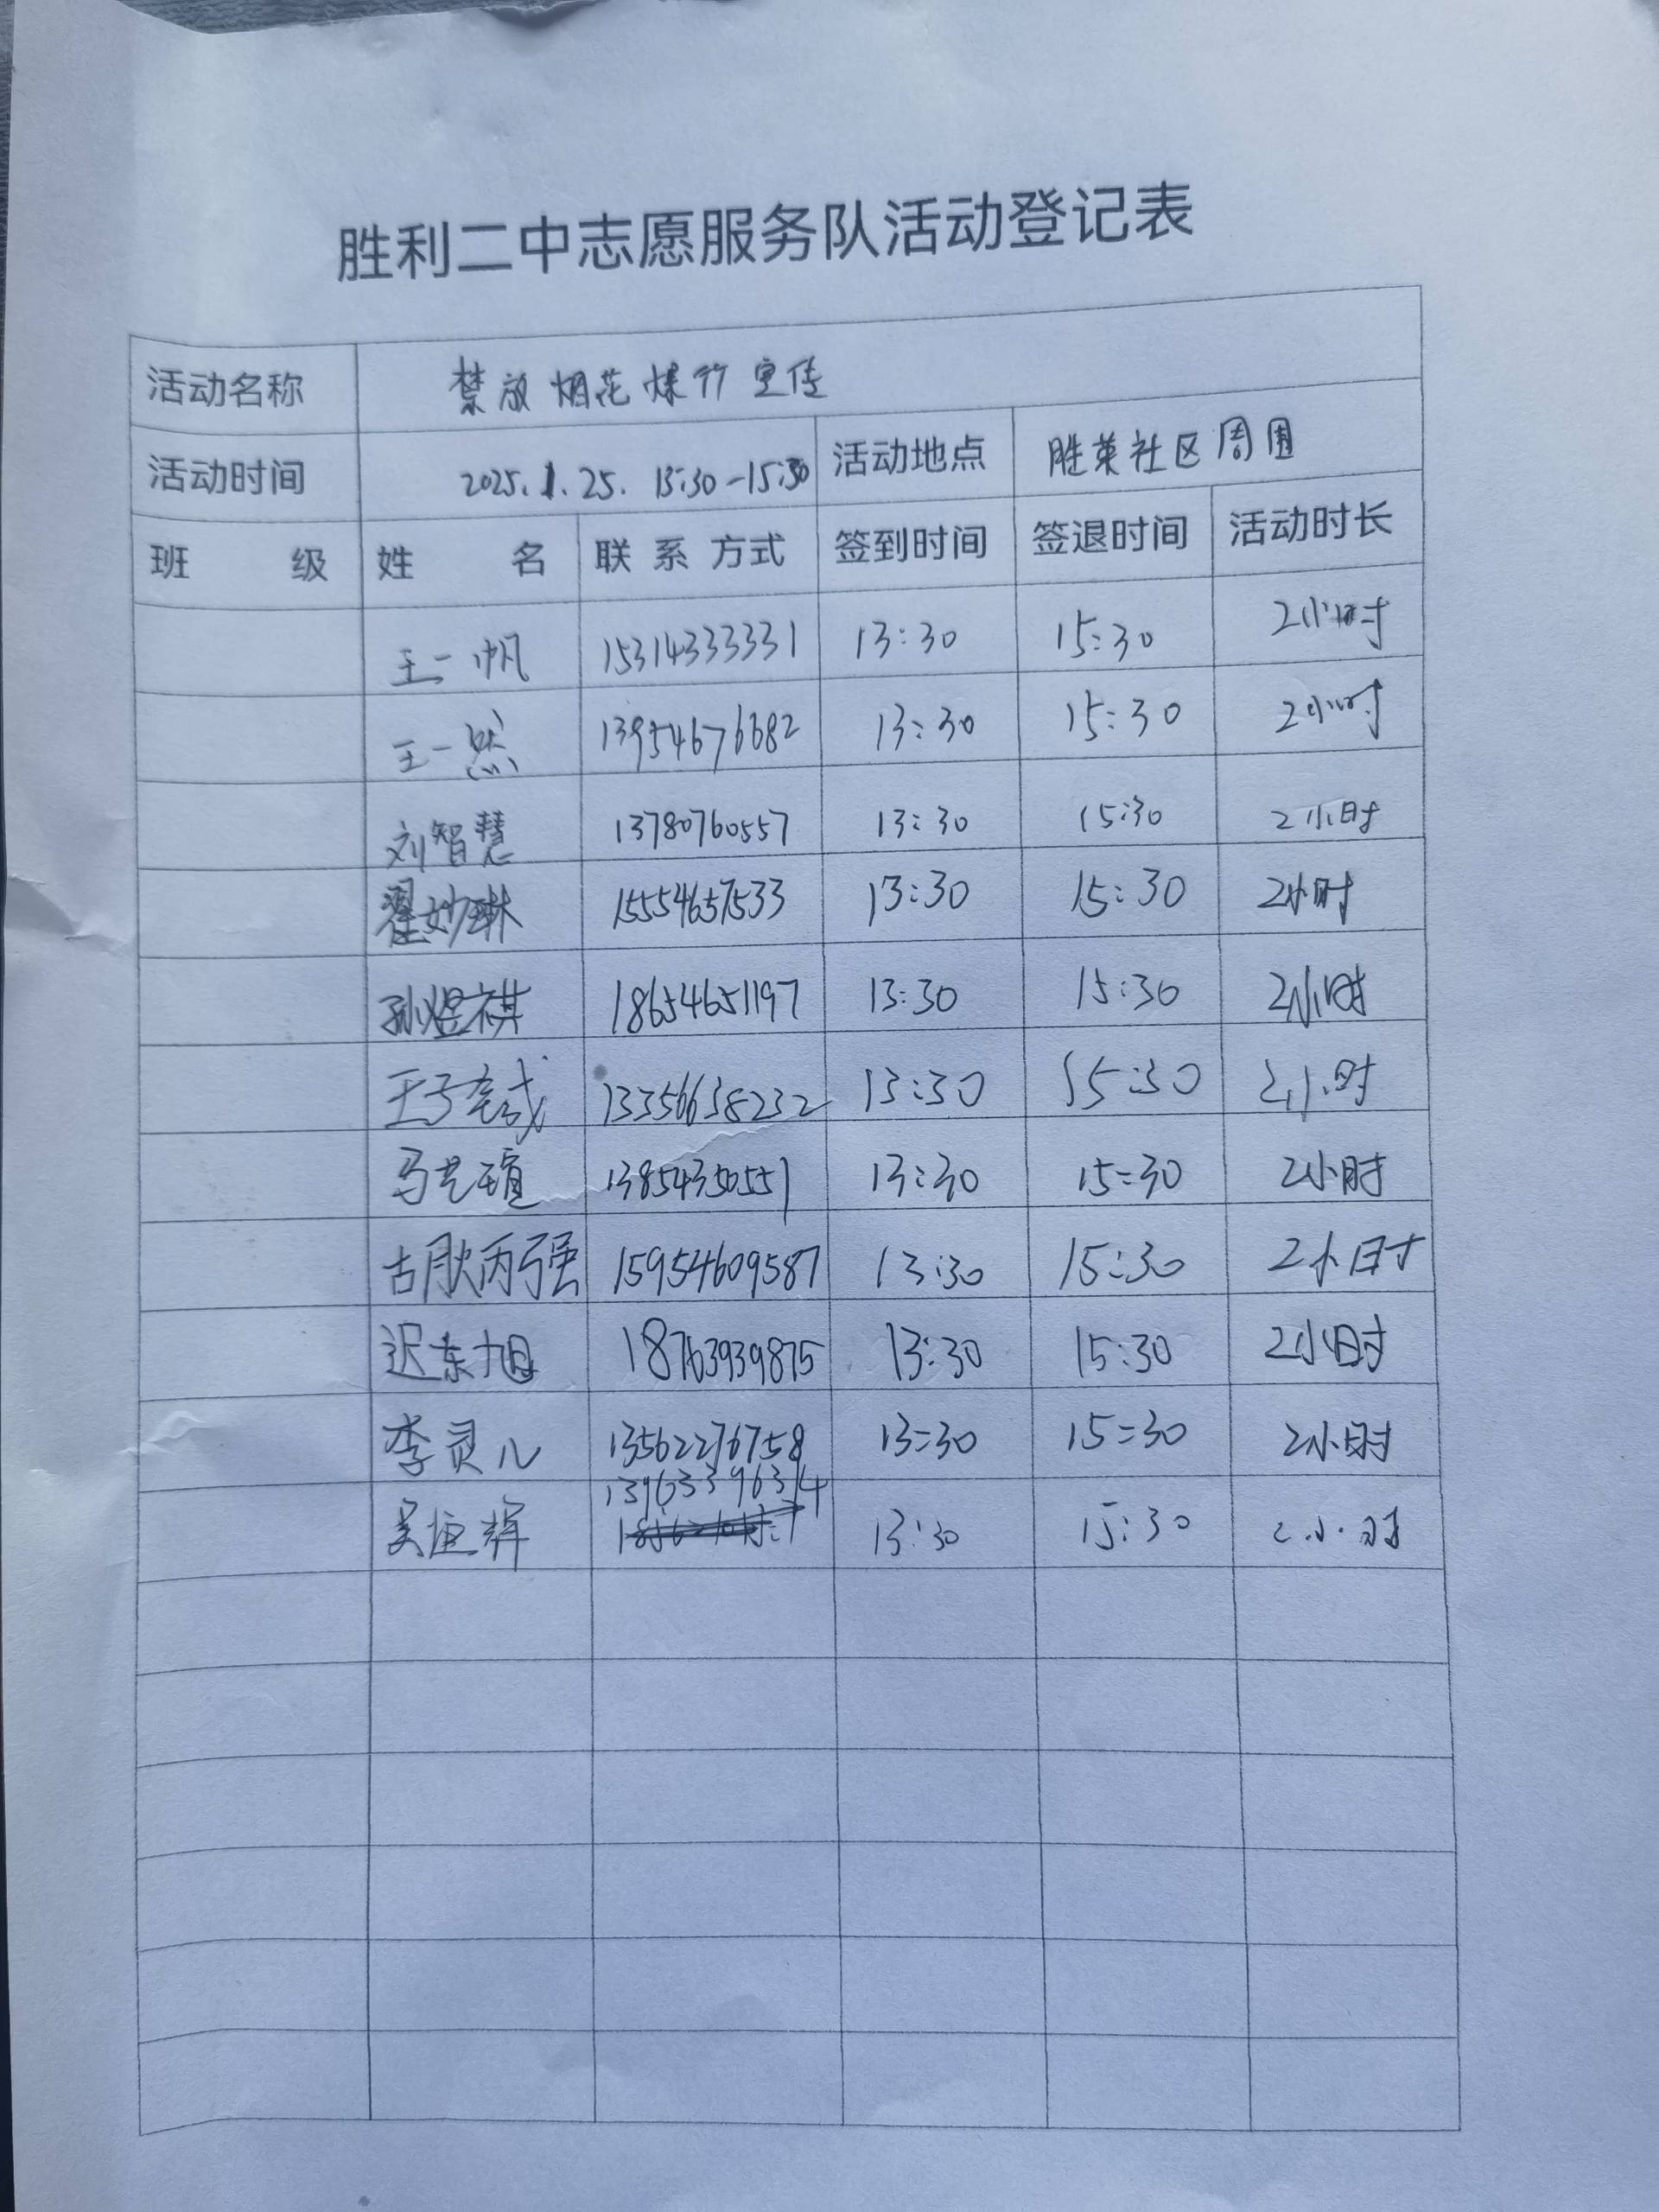 胜利二中志愿服务队活动登记表
活动名称 禁放烟花爆竹宣传
活动时间 2025.1.25. 13:30-15:30 活动地点 胜莱社区周围
班 级 姓 名 联系方式 签到时间 签退时间 活动时长
王一帆 15314333331 13:30 15:30 2小时
王一然 13954676682 13:30 15:30 2小时
刘智慧 13780760557 13:30 15:30 2小时
翟妙琳 15554657533 13:30 15:30 2小时
孙煜祺 18654651197 13:30 15:30 2小时
王子 13356638232 13:30 15:30 2小时
马艺瑄 13854350551 13:30 15:30 2小时
胡耿丙强 15954609587 13:30 15:30 2小时
迟东旭 18763939875 13:30 15:30 2小时
李灵儿 13562276758 13:30 15:30 2小时
吴恒辉 13963396314 13:30 15:30 2小时